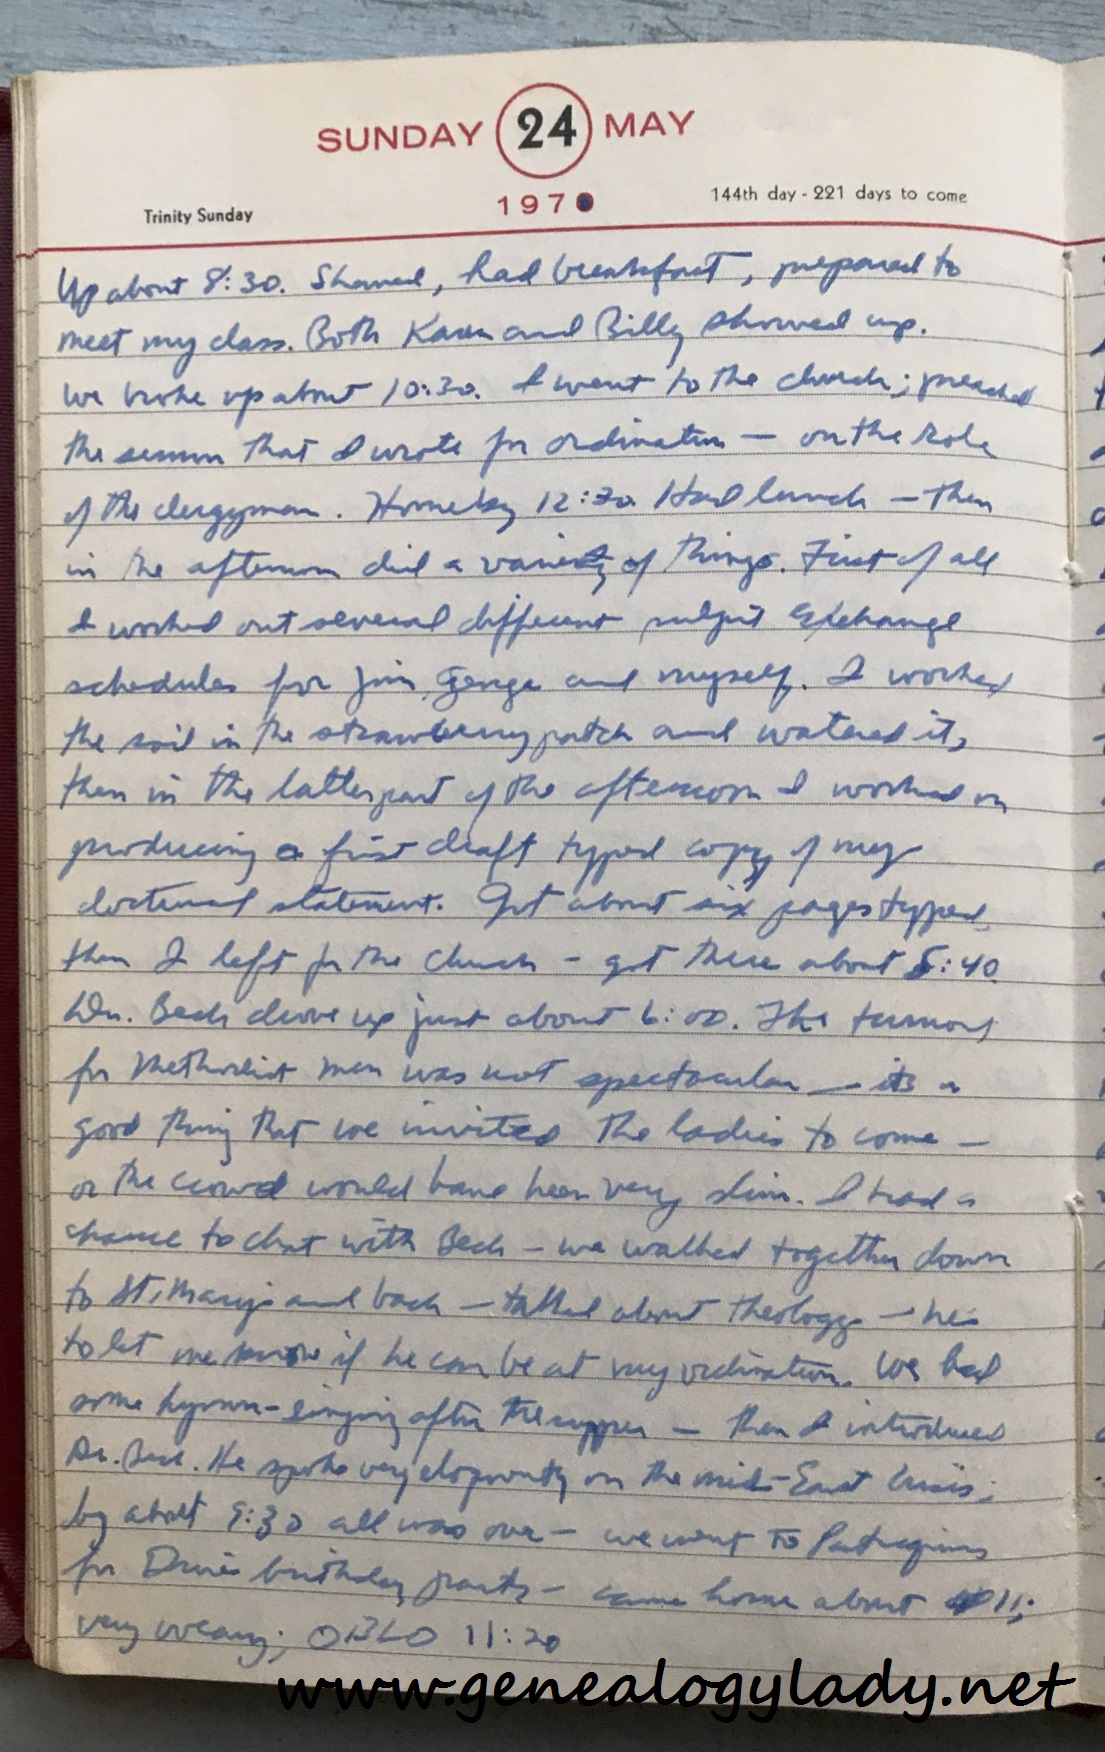 SUNDAY 24 MAY
1970
Trinity Sunday
144th day - 221 days to come
Up about 8:30. Shaved, had breakfast, prepared to
meet my class. Both Karen and Billy showed up.
We broke up about 10:30. I went to the church; preached
the sermon that I wrote for ordination — on the role
of the clergyman. Home by 12:30. Had lunch — then
in the afternoon did a variety of things. First of all
I worked out several different pulpit exchange
schedules for Jim, George and myself. I worked
the soil in the strawberry patch and watered it,
then in the latter part of the afternoon I worked on
producing a first draft typed copy of my
doctrinal statement. Got about six pages typed,
then I left for the church - got there about 5:40.
Dr. Beck drove up just about 6:00. The turnout
for Methodist Men was not spectacular — it's a
good thing that we invited the ladies to come —
or the crowd would have been very slim. I had a
chance to chat with Beck - we walked together down
to St. Mary's and back — talked about theology — he's
to let me know if he can be at my ordination. We had
some hymn-singing after the supper — then I introduced
Dr. Beck. He spoke very eloquently on the Mid-East Crisis;
by about 9:30 all was over — we went to
for birthday party — came home about 11;
very weary; 11:20
www.genealogylady.net